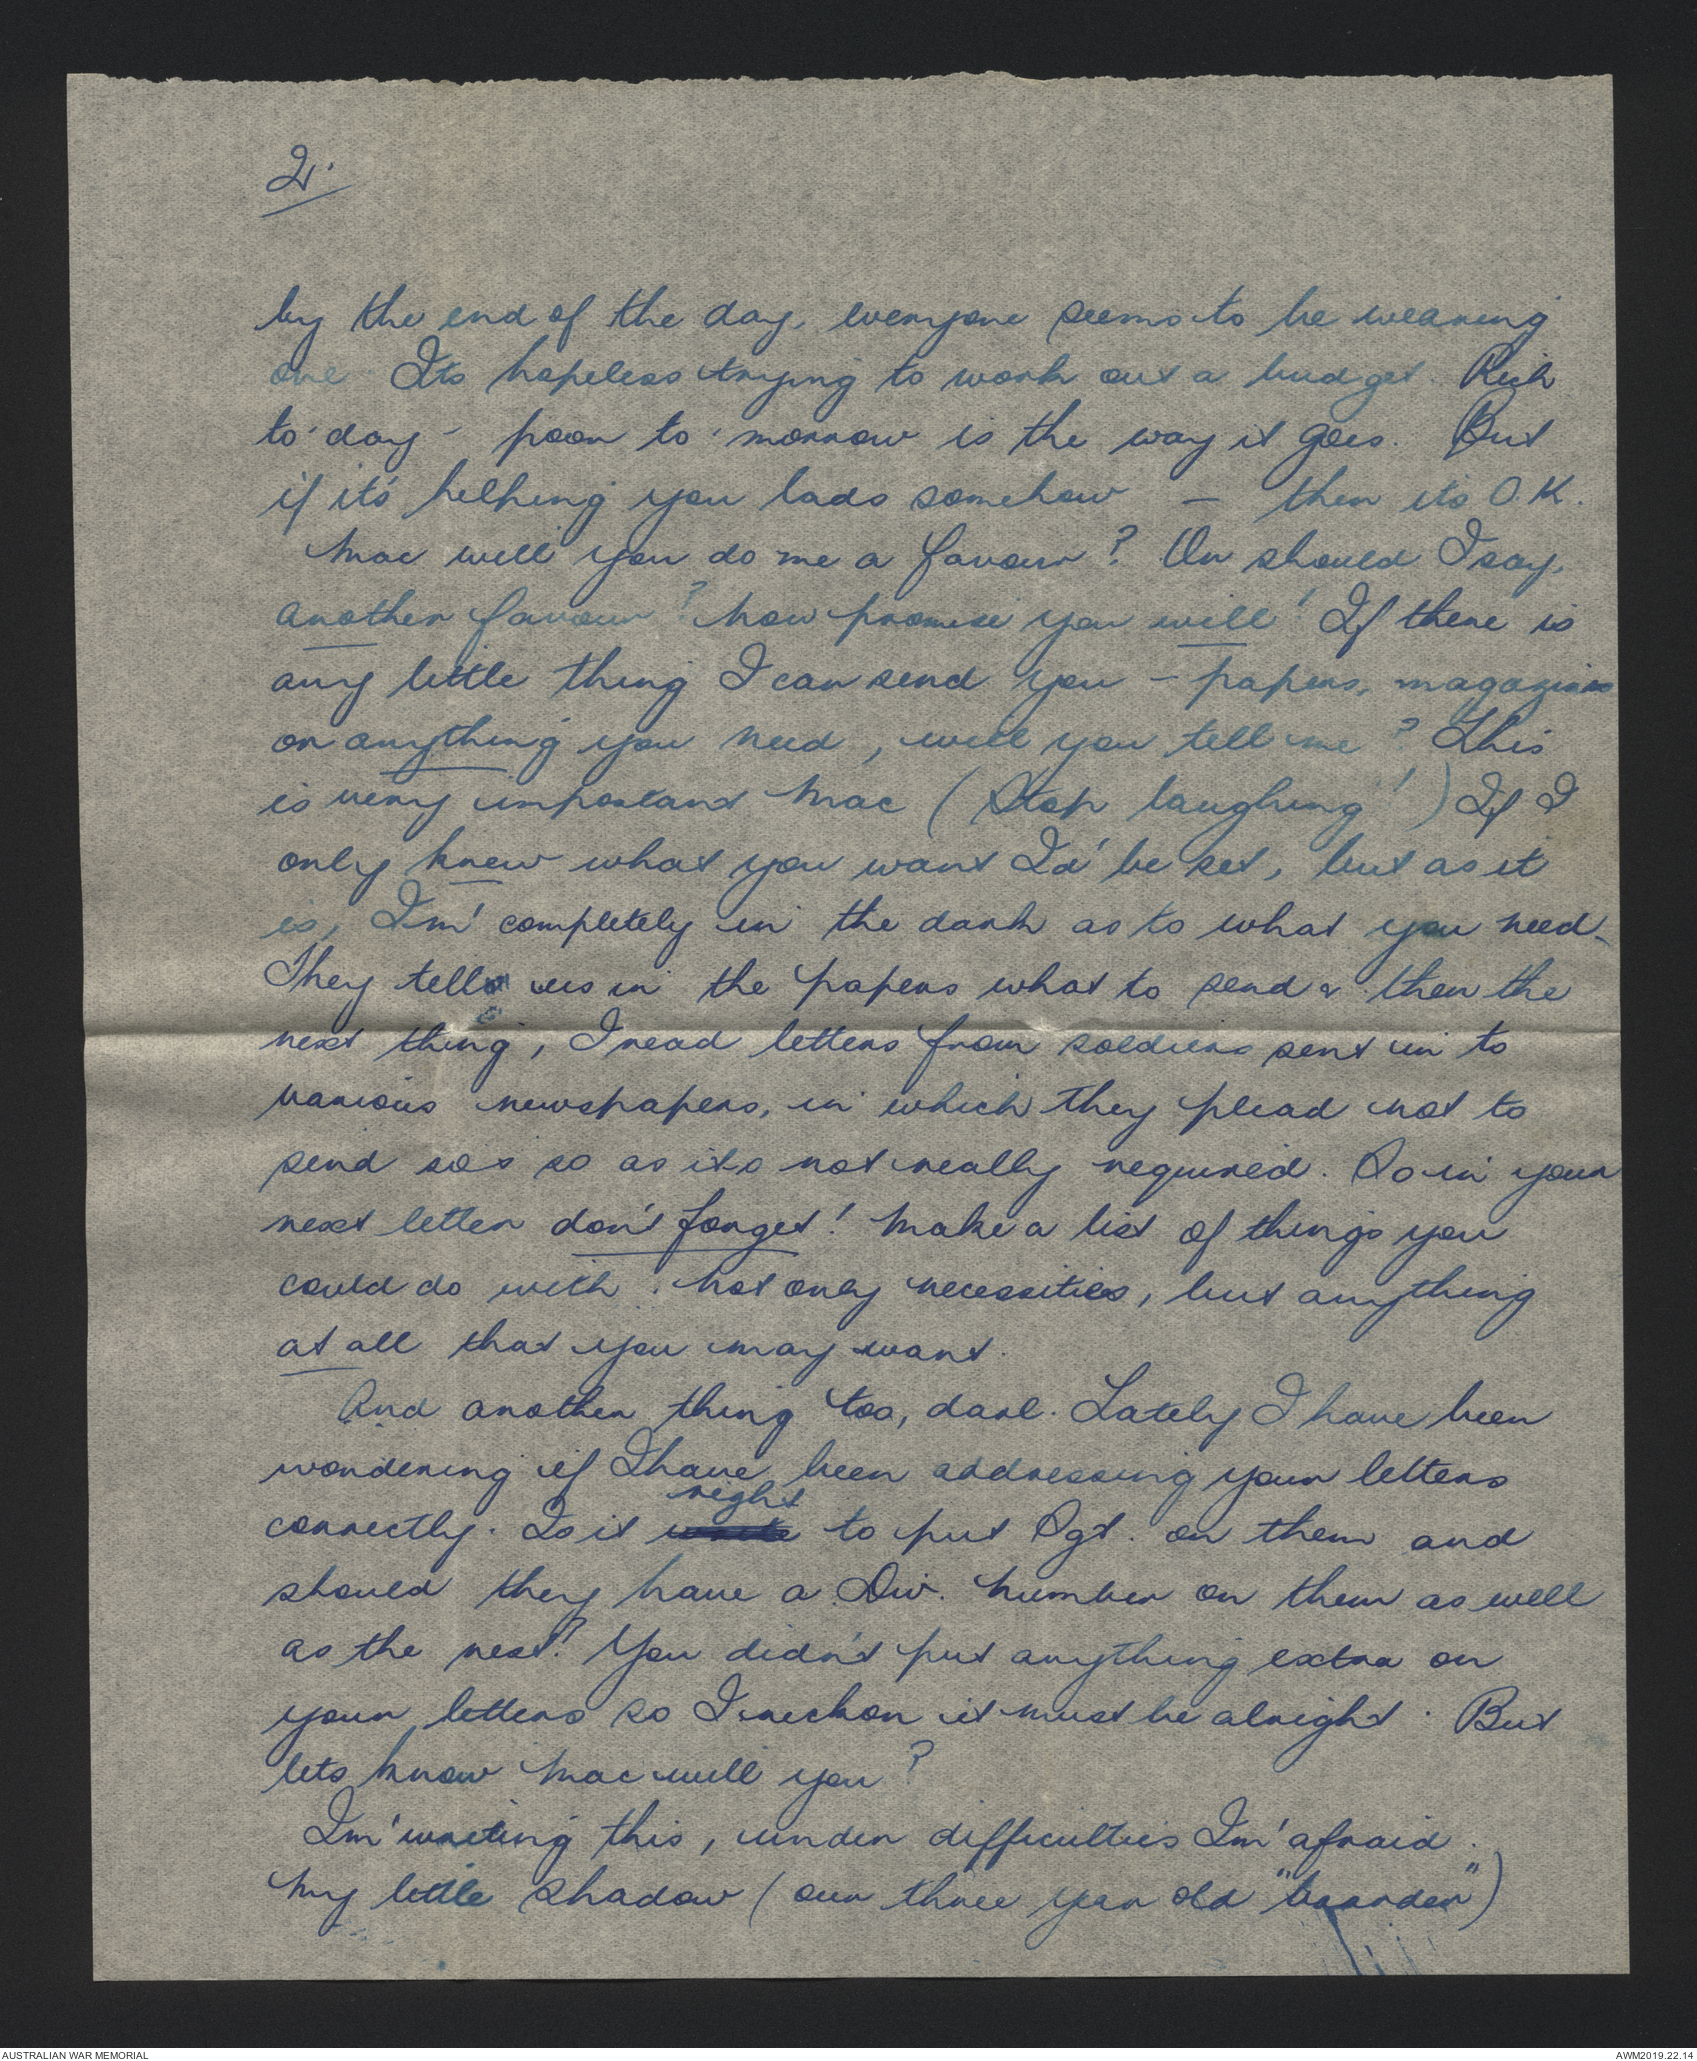 2.
by the end of the day, everyone seems to be wearing
one. Its hopeless trying to work out a budget. Rich
to'day - poor to'morrow is the way it goes. But
if it's helping you lads somehow - then its O.K.
Mac will you do me a favour? Or should I say,
another favour? Now promise you will! If there is
any little thing I can send you - papers, magazines
or anything you need, will you tell me? This
is very important Mac (Stop laughing!) If I
only knew what you want I'd be set, but as it
is, Im' completely in the dark as to what you need.
They tell us in the papers what to send & then the
next thing, I read letters from soldiers sent in to
various newspapers, in which they plead not to
send so & so as its not really required. So in your
next letter don't forget! Make a list of things you
could do with. Not only necessities, but anything
at all that you may want.
And another thing too, darl. Lately I have been
wondering if I have been addressing your letters
correctly. Is it right to put Sgt. on them and
should they have a Div. number on them as well
as the rest? You didn't put anything extra on
your letters so I reckon it must be alright. But
lets know Mac will you?
Im' writing this, under difficulties Im' afraid.
My little shadow (our three year old "boarder")
AUSTRALIAN WAR MEMORIAL
AWM2019.22.14